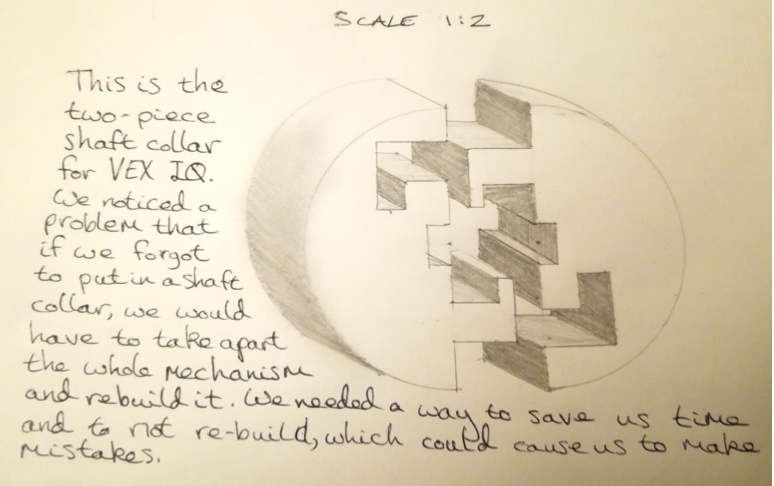 SCALE 1:2
This is the
two-piece
shaft collar
for VEX IQ.
We noticed a
problem that
if we forgot
to put in a shaft
collar, we would
have to take apart
the whole mechanism
and rebuild it. We needed a way to save us time
and to not re-build, which could cause us to make
mistakes.